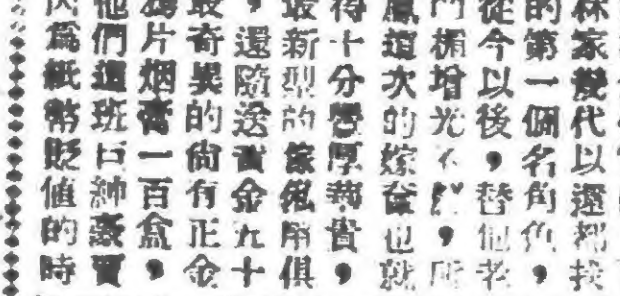 林家幾代以還都找
的第一個名角色，
從今以後，替他老
門楣增光不少，所
鳳這次的嫁奩也就
得十分豐厚華貴，
最新型的傢俬用俱
，還隨送黃金九十
最奇異的尙有正金
鴉片烟膏一百盒，
他們這班巨紳豪賈
因爲紙幣貶値的時